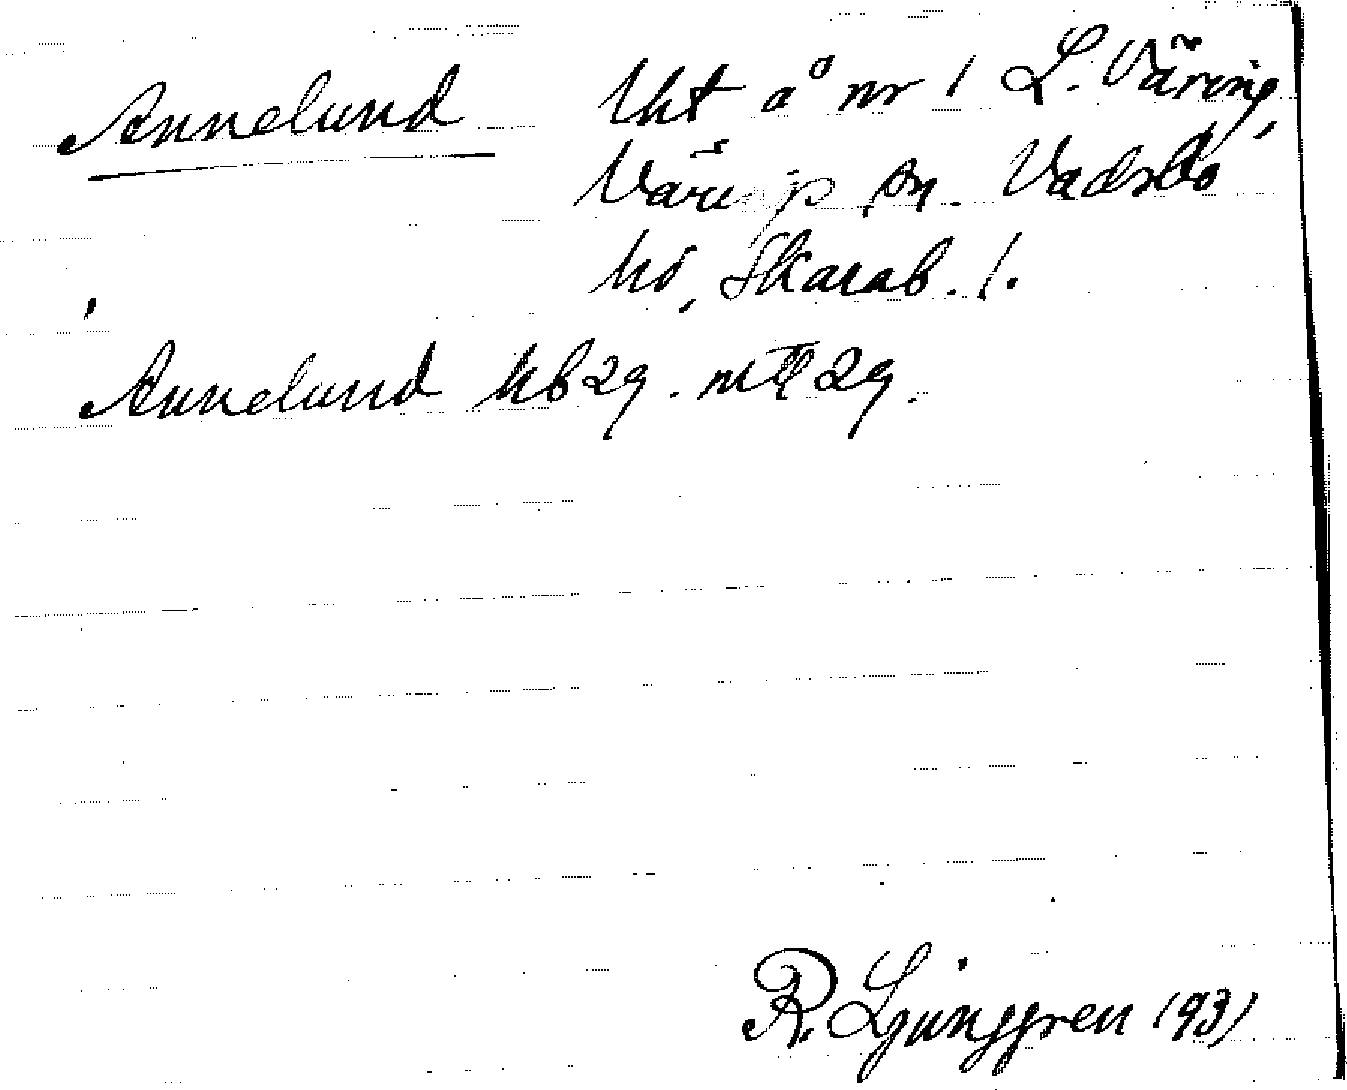 Annelund Lht å nr 1 L. Väring,
Värings sn. Vadsbo
hd, Skarab. l.
Annelund hb 29. mtl 29.
R. Ljunggren 1931